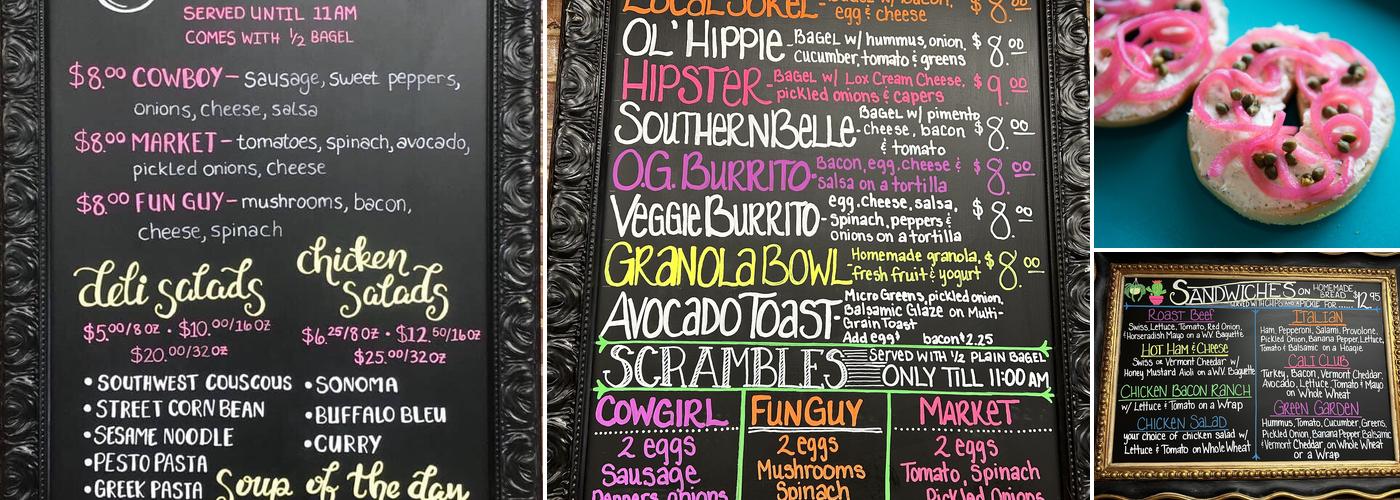 SERVED UNTIL 11AM
COMES WITH 1/2 BAGEL
$8.00 COWBOY - sausage, sweet peppers,
onions, cheese, salsa
$8.00 MARKET - tomatoes, spinach, avocado,
pickled onions, cheese
$8.00 FUN GUY - mushrooms, bacon,
cheese, spinach
deli salads
$5.00/8oz • $10.00/16oz
$20.00/32oz
• SOUTHWEST COUSCOUS
• STREET CORN BEAN
• SESAME NOODLE
• PESTO PASTA
• GREEK PASTA
chicken
salads
$6.25/8oz • $12.50/16oz
$25.00/32oz
• SONOMA
• BUFFALO BLEU
• CURRY
Soup of the day
LOCAL YOKEL - Bagel w/ bacon,
egg & cheese $8.00
OL' HIPPIE - Bagel w/ hummus, onion,
cucumber, tomato & greens $8.00
HIPSTER - Bagel w/ Lox Cream Cheese,
pickled onions & capers $9.00
SOUTHERN BELLE - Bagel w/ pimento
cheese, bacon
& tomato $8.00
O.G. BURRITO - Bacon, egg, cheese &
salsa on a tortilla $8.00
VEGGIE BURRITO - egg, cheese, salsa,
spinach, peppers &
onions on a tortilla $8.00
GRANOLA BOWL - Homemade granola,
fresh fruit & yogurt $8.00
AVOCADO TOAST - Micro Greens, pickled onion,
Balsamic Glaze on Multi-
Grain Toast
Add egg $ bacon $2.25
SCRAMBLES SERVED WITH 1/2 PLAIN BAGEL
ONLY TILL 11:00 AM
COWGIRL
2 eggs
Sausage
Peppers, onions
FUN GUY
2 eggs
Mushrooms
Spinach
MARKET
2 eggs
Tomato, Spinach
Pickled Onions
SANDWICHES ON HOMEMADE
BREAD $12.95
SERVED WITH CHIPS AND A PICKLE FOR
ROAST BEEF
Swiss, Lettuce, Tomato, Red Onion,
Horseradish Mayo on a W.V. Baguette
HOT HAM & CHEESE
Swiss or Vermont Cheddar w/
Honey Mustard Aioli on a W.V. Baguette
CHICKEN BACON RANCH
w/ Lettuce & Tomato on a Wrap
CHICKEN SALAD
your choice of chicken salad w/
Lettuce & Tomato on Whole Wheat
ITALIAN
Ham, Pepperoni, Salami, Provolone,
Pickled Onion, Banana Pepper, Lettuce,
Tomato & Balsamic on a Hoagie
CALI CLUB
Turkey, Bacon, Vermont Cheddar,
Avocado, Lettuce, Tomato & Mayo
on Whole Wheat
GREEN GARDEN
Hummus, Tomato, Cucumber, Greens,
Pickled Onion, Banana Pepper, Balsamic
& Vermont Cheddar on Whole Wheat
or a Wrap